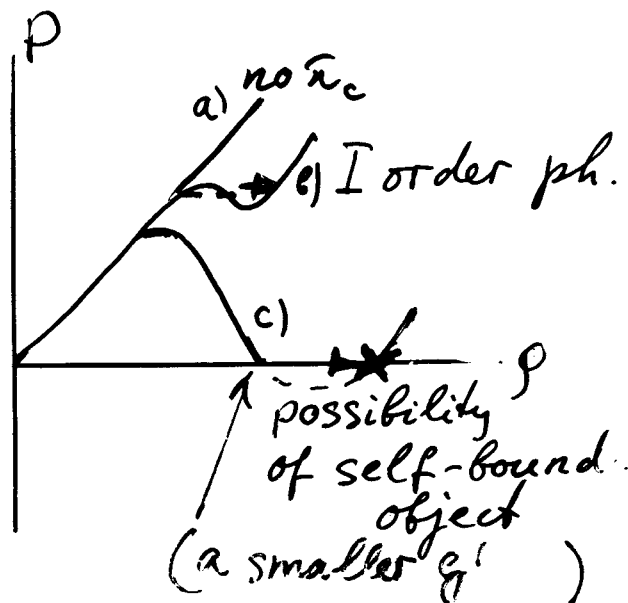 P
a) no π̄c
b) I order ph.
c)
ρ
possibility
of self-bound
object
(a smaller g'
)